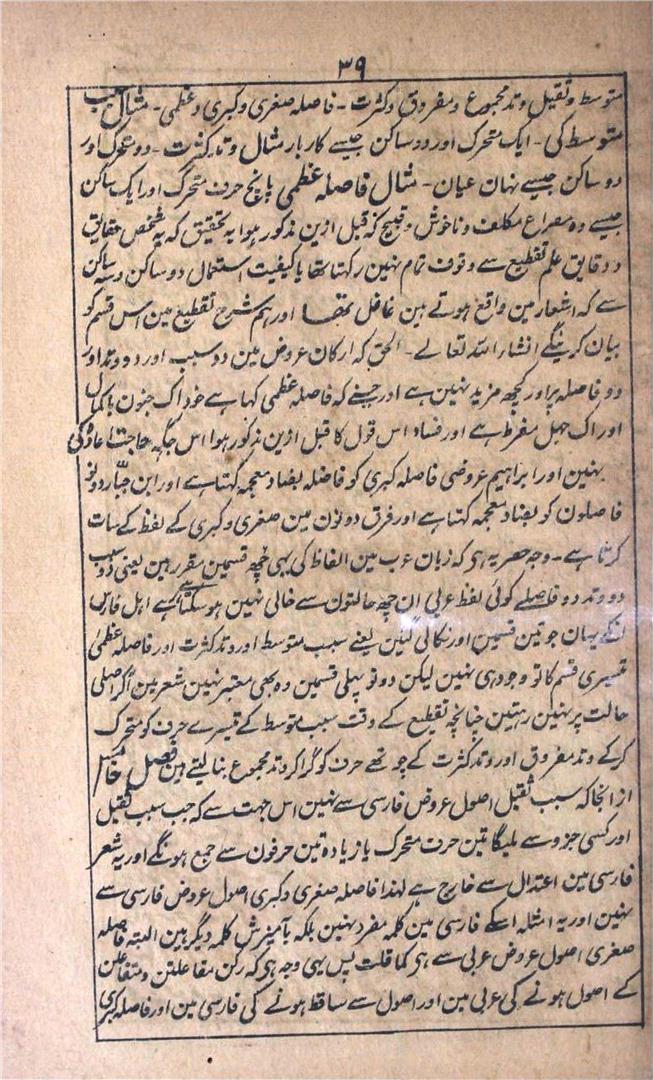 ٣٩
متوسط و ثقیل و وتد مجموع و مفروق و کثرت - فاصله صغری و کبری و عظمی - مثال سبب
متوسط کی - ایک متحرک اور دو ساکن جیسے کار بار مثال وتد کثرت - دو متحرک اور
دو ساکن جیسے نہان عیان - مثال فاصله عظمی پانچ حرف متحرک اور ایک ساکن
جیسے وہ مصراع مکلف و ناخوش و قبیح که قبل ازین مذکور ہوا بہ تحقیق کہ یہ شخص حقایق
و دقایق علم تقطیع سے وقوف تمام نہین رکھتا تھا یا کیفیت استعمال دو ساکن و سہ ساکن
سے کہ اشعار مین واقع ہوتے ہین غافل تھا اور ہم شرح تقطیع مین اس قسم کو
بیان کرینگے انشاء اللہ تعالے - الحق کہ ارکان عروض مین دو سبب اور دو وتد اور
دو فاصله پر اور کچھ مزید نہین ہے اور جسنے کہ فاصله عظمی کہا ہے خود اک جنون باکمال
اور اک جہل مفرط ہے اور فساد اس قول کا قبل ازین مذکور ہوا اس جگہ حاجت اعادہ کی
نہین اور ابراہیم عروضی فاصله کبری کو فاضله بضاد معجمہ کہتا ہے اور ابن جبار دونو
فاصلون کو بضاد معجمہ کہتا ہے اور فرق دونون مین صغری و کبری کے لفظ کے سات
کرتا ہے - وجه حصر یہ ہی کہ زبان عرب مین الفاظ کی یہی چھ قسمین مقرر ہین یعنی دو سبب
دو وتد دو فاصلے کوئی لفظ عربی ان چھ حالتون سے خالی نہین ہو سکتا ہے اہل فارس
انکے یہان جو تین قسمین اور نکالی گئین یعنے سبب متوسط اور وتد کثرت اور فاصله عظمی
تیسری قسم کا تو وجود ہی نہین لیکن دونو پہلی قسمین وہ بھی معتبر نہین شعر مین اگر اصلی
حالت پر نہین رہتین چنانچہ تقطیع کے وقت سبب متوسط کے تیسرے حرف کو متحرک
کر کے وتد مفروق اور وتد کثرت کے چوتھے حرف کو گرا کر وتد مجموع بنا لیتے ہین فصل خامس
از انجا کہ سبب ثقیل اصول عروض فارسی سے نہین اس جہت سے کہ جب سبب ثقیل
اور کسی جزو سے ملیگا تین حرف متحرک یا زیادہ تین حرفون سے جمع ہونگے اور یہ شعر
فارسی مین اعتدال سے خارج ہے لہذا فاصله صغری و کبری اصول عروض فارسی سے
نہین اور یہ امثله اسکے فارسی مین کلمه مفرد نہین بلکہ بآمیزش کلمه دیگر ہین البته فاصله
صغری اصول عروض عربی سے ہی کما قلت پس یہی وجه ہی کہ رکن مفاعلتن و متفاعلن
کے اصول ہونے کی عربی مین اور اصول سے ساقط ہونے کی فارسی مین اور فاصله کبری